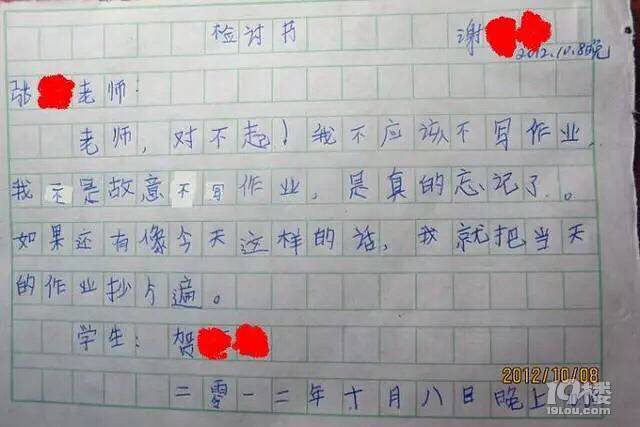 检讨书 谢
2012.10.8晚
张 老师:
老师，对不起！我不应该不写作业，
我不是故意不写作业，是真的忘记了。
如果还有像今天这样的话，我就把当天
的作业抄5遍。
学生: 贺
2012/10/08
二零一二年十月八日晚上
19楼
19lou.com